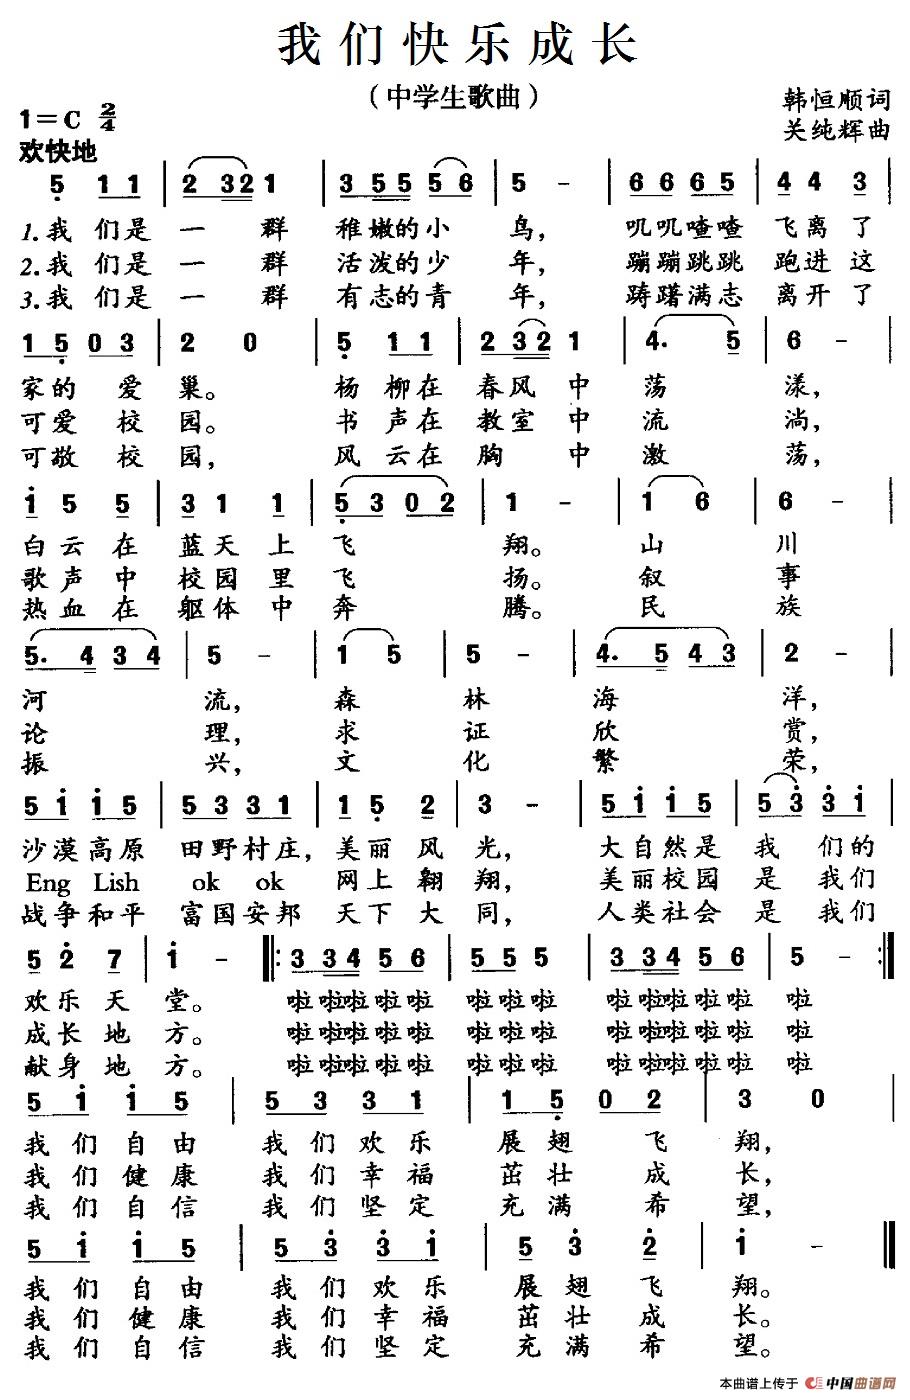 我们快乐成长
（中学生歌曲）
1＝C 2/4
韩恒顺词
欢快地
关纯辉曲
5 1 1 | 2 3 2 1 | 3 5 5 5 6 | 5 - | 6 6 6 5 | 4 4 3 |
1.我 们是 一 群 稚嫩的小 鸟， 叽叽喳喳 飞离了
2.我 们是 一 群 活泼的少 年， 蹦蹦跳跳 跑进这
3.我 们是 一 群 有志的青 年， 踌躇满志 离开了
1 5 0 3 | 2 0 | 5 1 1 | 2 3 2 1 | 4. 5 | 6 - |
家的 爱 巢。 杨 柳在 春风 中 荡 漾，
可爱 校 园。 书 声在 教室 中 流 淌，
可敬 校 园， 风 云在 胸 中 激 荡，
i 5 5 | 3 1 1 | 5 3 0 2 | 1 - | 1 6 | 6 - |
白云在 蓝天上 飞 翔。 山 川
歌声中 校园里 飞 扬。 叙 事
热血在 躯体中 奔 腾。 民 族
5. 4 3 4 | 5 - | 1 5 | 5 - | 4. 5 4 3 | 2 - |
河 流， 森 林 海 洋，
论 理， 求 证 欣 赏，
振 兴， 文 化 繁 荣，
5 i i 5 | 5 3 3 1 | 1 5 2 | 3 - | 5 i i 5 | 5 3 3 i |
沙漠高原 田野村庄， 美丽 风 光， 大自然是 我 们的
Eng Lish ok ok 网上 翱 翔， 美丽校园 是 我们
战争和平 富国安邦 天下 大 同， 人类社会 是 我们
5 2 7 | i - |: 3 3 4 5 6 | 5 5 5 5 | 3 3 4 5 6 | 5 - :|
欢乐天 堂。 啦 啦啦 啦 啦 啦啦啦 啦 啦啦啦啦 啦
成长地 方。 啦 啦啦 啦 啦 啦啦啦 啦 啦啦啦啦 啦
献身地 方。 啦 啦啦 啦 啦 啦啦啦 啦 啦啦啦啦 啦
5 i i 5 | 5 3 3 1 | 1 5 0 2 | 3 0 |
我 们 自 由 我 们 欢 乐 展 翅 飞 翔，
我 们 健 康 我 们 幸 福 茁 壮 成 长，
我 们 自 信 我 们 坚 定 充 满 希 望，
5 i i 5 | 5 3 3 i | 5 3 2 | i - ‖
我 们 自 由 我 们 欢 乐 展 翅 飞 翔。
我 们 健 康 我 们 幸 福 茁 壮 成 长。
我 们 自 信 我 们 坚 定 充 满 希 望。
本曲谱上传于 中国曲谱网